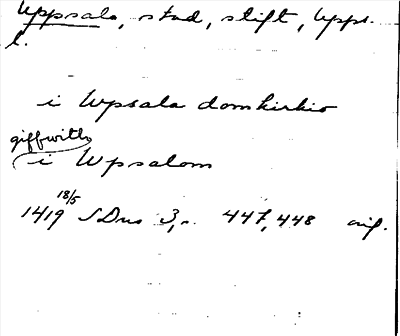 Uppsala, stad, stift, Upps.
l.
i Wpsala domkirkio
giffwith
i Wpsalom
1419 18/5 SDns 3, 447, 448 orig.